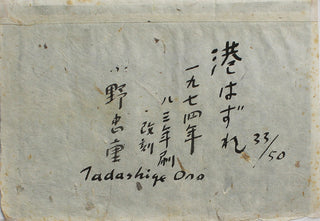 港はずれ
33/50
一九七四年
八三年刷
・改刻
小野忠重
Tadashige Ono